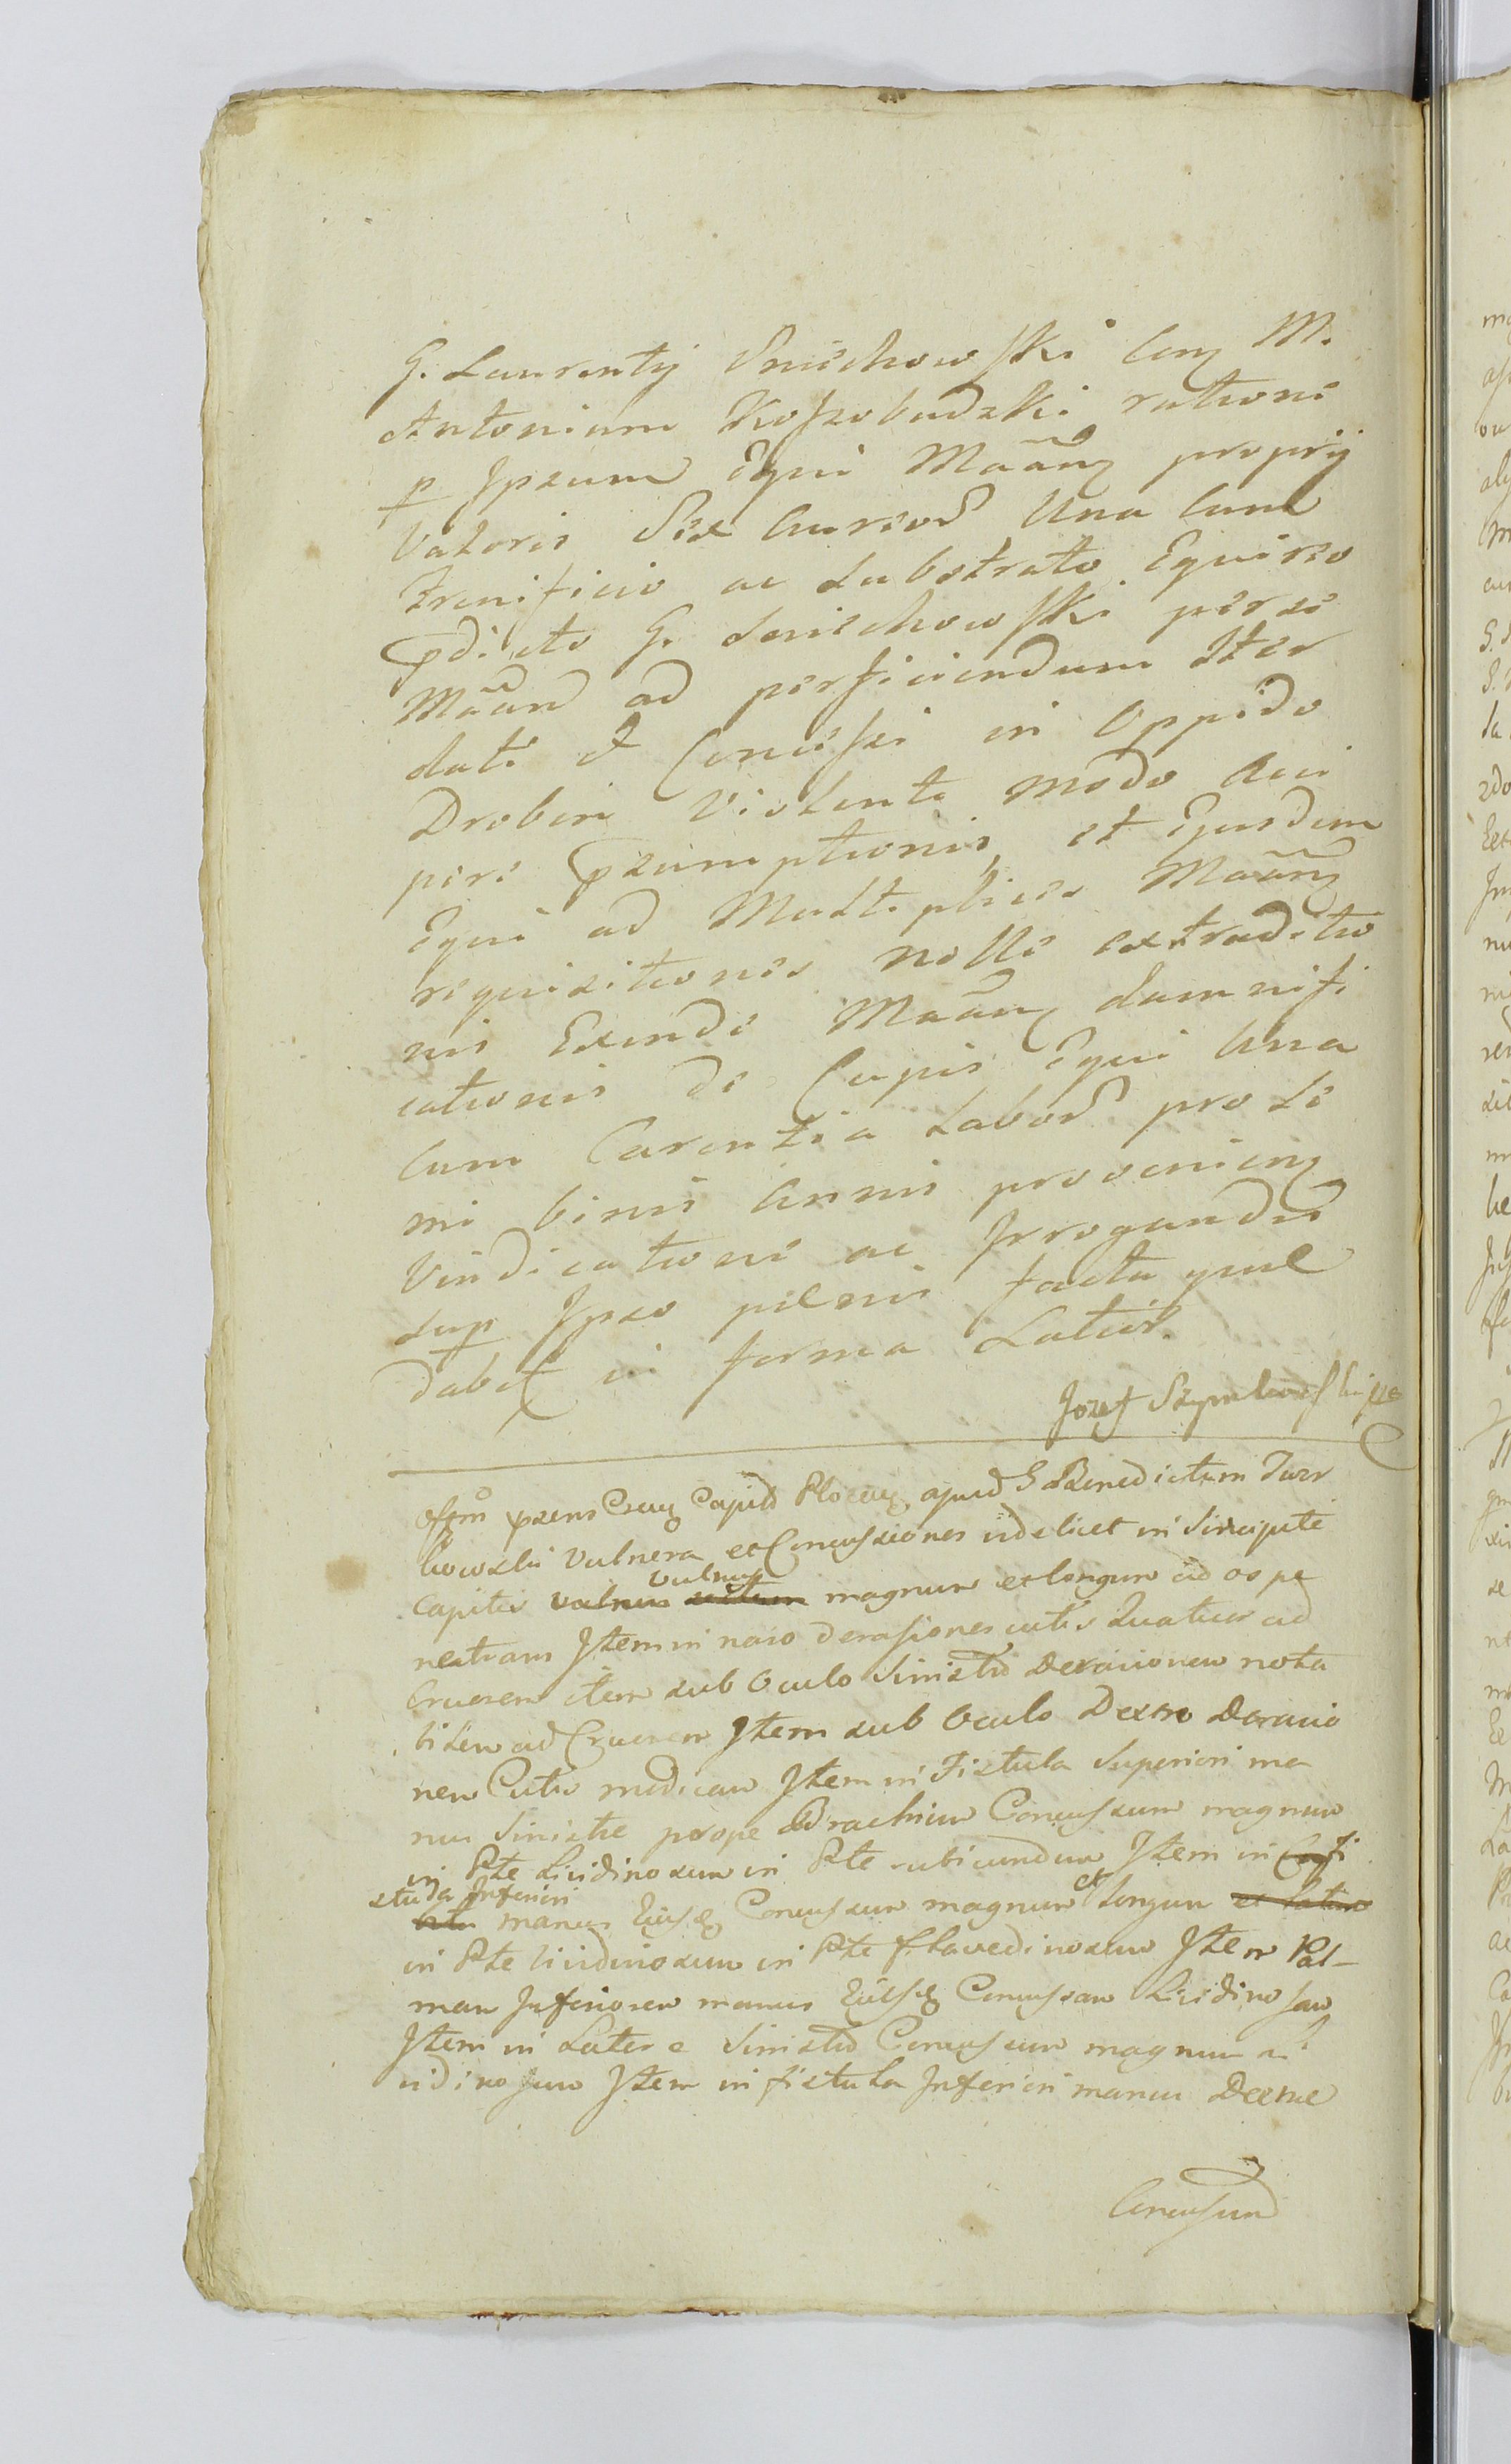 G. Laurentij Sniechowski Conz M.
Antonium Koszobudzki rationi
p Ipsum Equi Maãnz proprij
Valoris Sex Aureor Una Cum
Frenificio ac Substrato Equireo
pdicto G. Sniechowski per se
Mãan ad perficiendum Iter
dati et Concessi in Oppido
Drobin Violento modo Reci
pere pzumptionis, et Ejusdem
Equi ad Multiplices Maãnz
requisitiones nolle extraditio
nis Exinde Maãnz damnifi
cationis de Cupis Equi Una
Cum Carentia Labor pro Se
mi binis Annis provenienz
Vindicationi ac Irrogand
sup Ipso paenis facta que
dabit in forma Latior.
Jozef Szymborski
Offm pzens Crenz Capid Plocenz, apud G Benedictum Turr
howski Vulnera et Concussiones videlicet in Sincipite
Capitis vulnus magnum et longum ad os pe
netrans Item in naso derasiones cutis Quatuor ad
Cruorem item sub Oculo Sinistro Derasionem nota
bilem ad Cruorem Item sub Oculo Dextro Derasio
nem Cutis modicam Item in Fistula Superiori ma
nus Sinistre prope Brachium Concussum magnum
in Pte Lividinosum in Pte rubicundum Item in fi
stula Inferiori
manus Ejusd Concussum magnum et longum
in Pte lividinosum in Pte flavedinosum Item Pal-
mam Inferiorem manus Ejusd Concussam Lividinosam
Item in Latere Sinistro Concussum magnum li
vidinosum Item in fistula Inferiori manus Dextre
Concussum